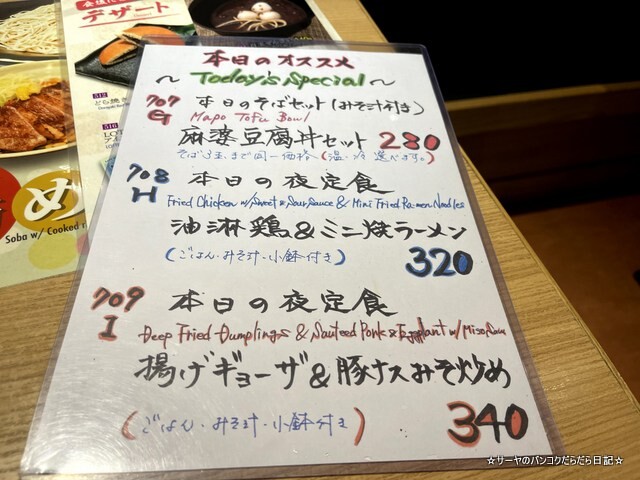 食後に
デザート
512
どら焼き
510
め
Soba w/ Cooked
本日のオススメ
~ Today's Special ~
707 本日のそばセット(みそ汁付き)
G Mapo Tofu Bowl
麻婆豆腐丼セット 280
そば3玉まで同一価格(温・冷 選べます。)
708 本日の夜定食
H Fried Chicken w/Sweet & Sour Sauce & Mini Fried Ramen Noodles
油淋鶏&ミニ焼ラーメン
(ごはん・みそ汁・小鉢付き) 320
709 本日の夜定食
I Deep Fried Dumplings & Sauteed Pork & Eggplant w/ Miso Sauce
揚げギョーザ&豚ナスみそ炒め
(ごはん・みそ汁・小鉢付き) 340
☆サーヤのバンコクだらだら日記☆